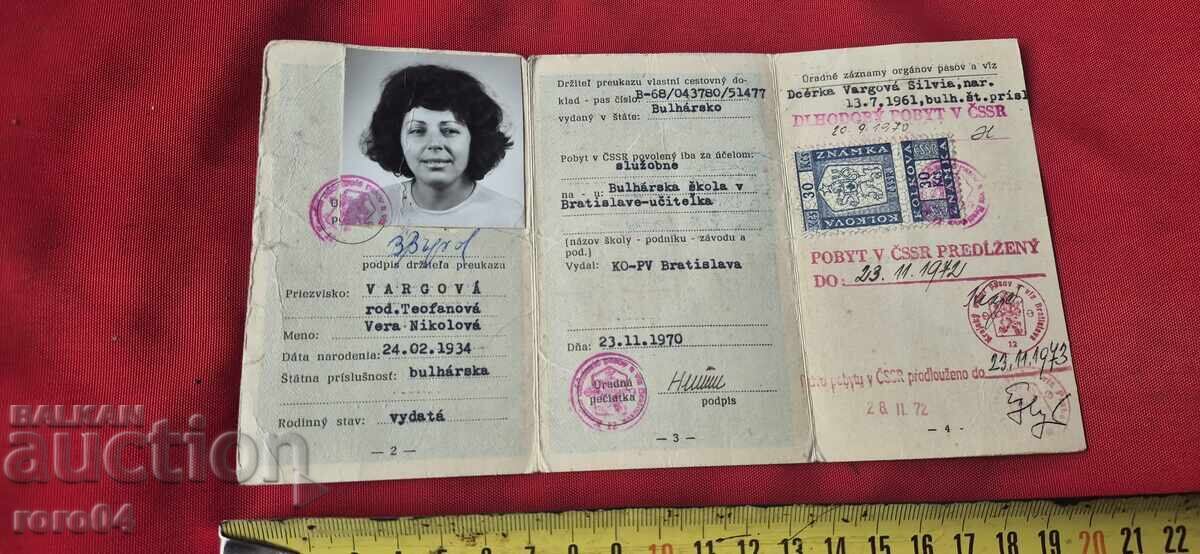 podpis držiteľa preukazu
Priezvisko: VARGOVÁ
rod.Teofanová
Meno: Vera Nikolová
Dáta narodenia: 24.02.1934
Štátna príslušnosť: bulhárska
Rodinný stav: vydatá
— 2 —
Držiteľ preukazu vlastní cestovný do-
klad - pas číslo: B-68/043780/51477
vydaný v štáte: Bulhársko
Pobyt v ČSSR povolený iba za účelom:
služobne
na - u: Bulhárska škola v
Bratislave-učiteľka
(názov školy - podniku - závodu a
pod.)
Vydal: KO-PV Bratislava
Dňa: 23.11.1970
Úradná
pečiatka
podpis
— 3 —
Úradné záznamy orgánov pasov a víz
Dcérka Vargová Silvia, nar.
13.7,1961,bulh.št.prísl
DLHODOBÝ POBYT V ČSSR
20.9.1970
30 Kčs
ZNAMKA
KOLKOVA
ČSSR
30
KOLKOVA
ZNAMKA
POBYT V ČSSR PREDLŽENÝ
DO: 23.11.1972
12
pobytu v ČSSR prodlouženo do 23.11.1973
28. II. 72
— 4 —
BALKAN
auction
roro04
2 3 4 5 6 7 8 9 10 11 12 13 14 15 16 17 18 19 20 21 22